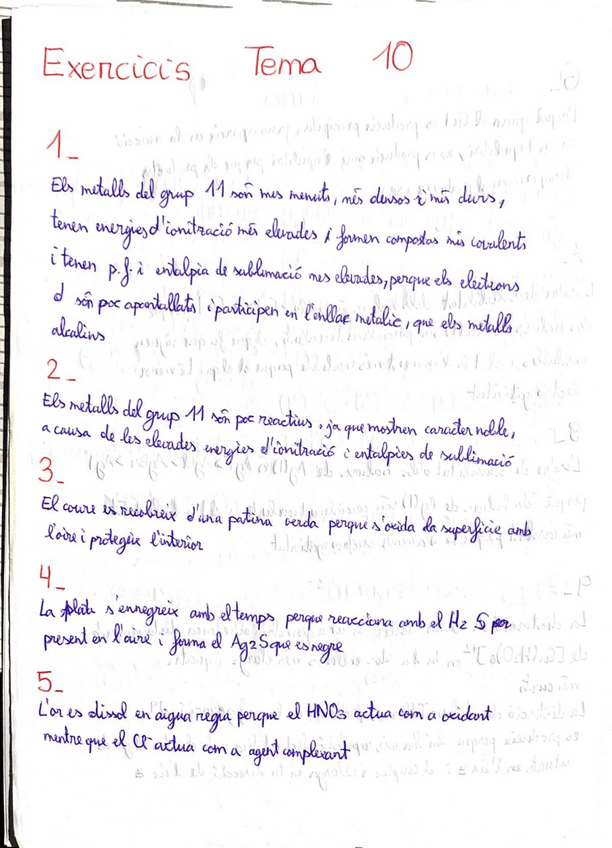 Exercicis Tema 10
1_
Els metalls del grup 11 són mes menuts, més densos i més durs,
tenen energies d'ionització més elevades i formen compostos més covalents
i tenen p.f. i entalpia de sublimació mes elevades, perque els electrons
d són poc apantallats i participen en l'enllaç metalic, que els metalls
alcalins
2_
Els metalls del grup 11 són poc reactius, ja que mostren caracter noble,
a causa de les elevades energies d'ionització i entalpies de sublimació
3_
El coure es recobreix d'una patina verda perque s'oxida la superficie amb
l'aire i protegeix l'interior
4_
La plata s'ennegreix amb el temps, perque reacciona amb el H2 S
present en l'aire i forma el Ag2S que es negre
5_
L'or es dissol en aigua regia perque el HNO3 actua com a oxidant
mentre que el Cl- actua com a agent complexant